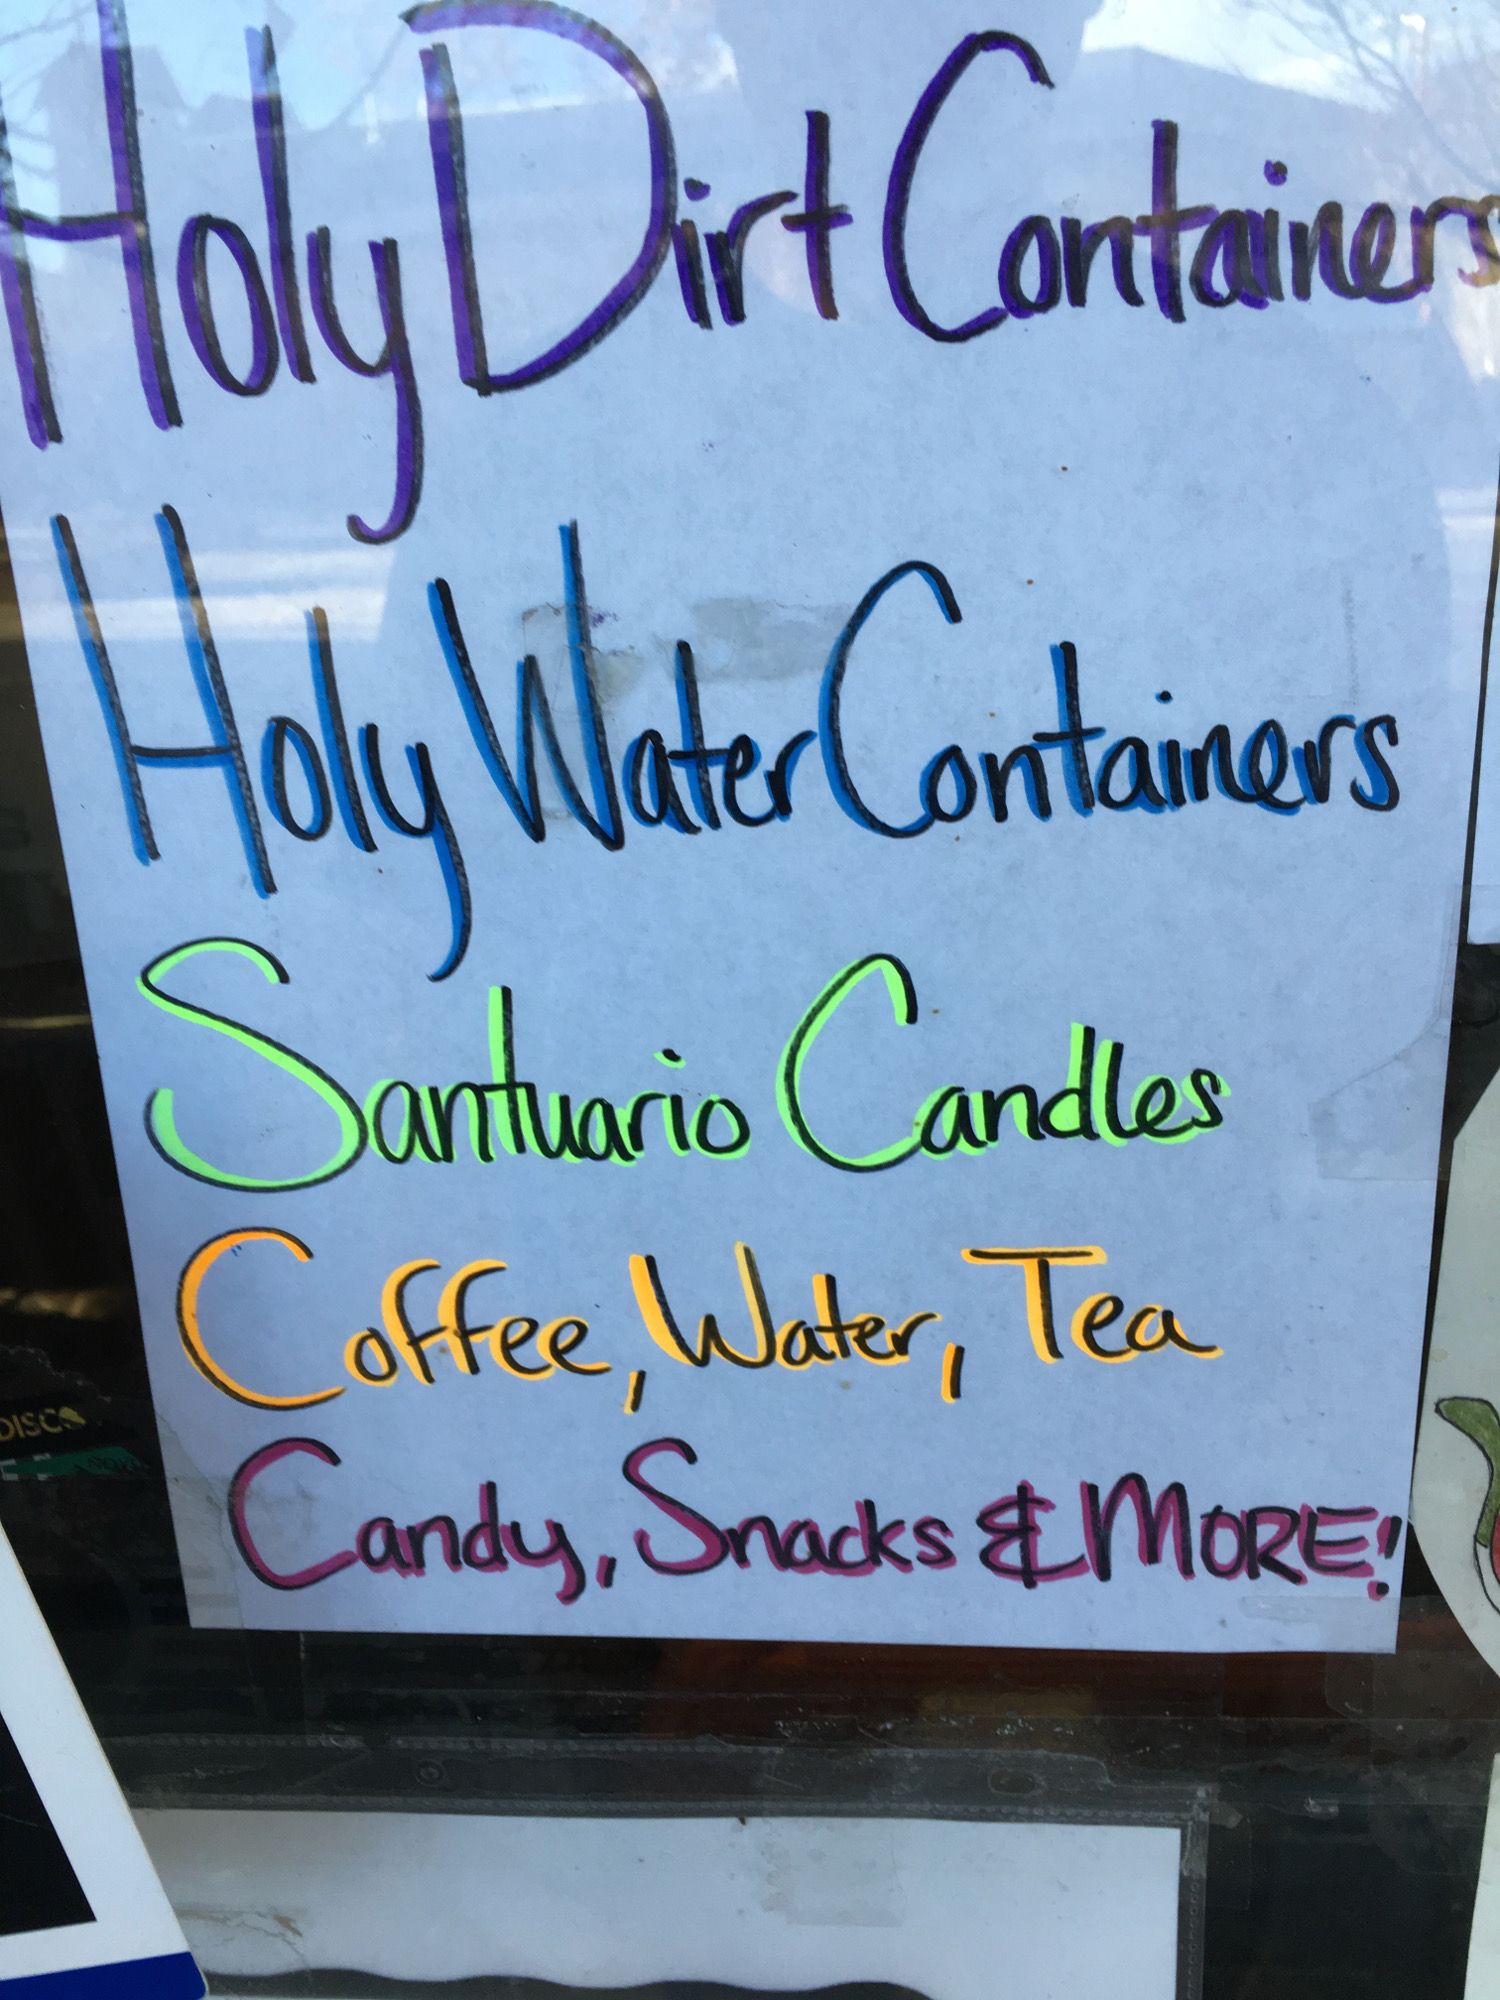 Holy Dirt Containers
Holy Water Containers
Santuario Candles
Coffee, Water, Tea
Candy, Snacks & MORE!
DISC